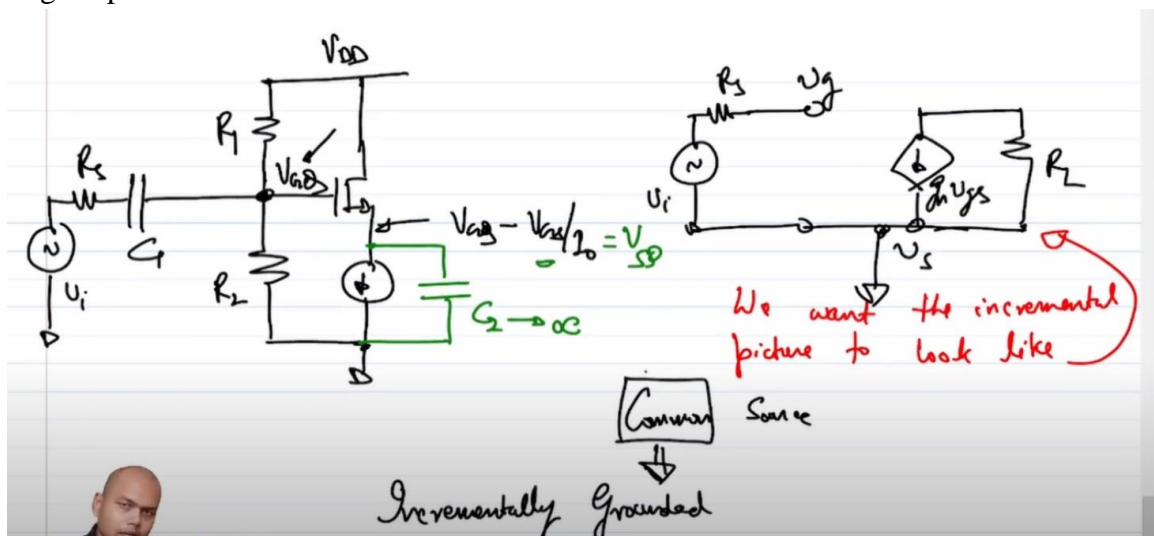 V_DD
R_1
R_s
V_GQ
C_1
V_i
R_2
V_GQ - V_GS/I_0 = V_SQ
C_2 → ∞
R_s
v_g
v_i
g_m v_gs
R_L
v_s
We want the incremental
picture to look like
Common Source
Incrementally Grounded